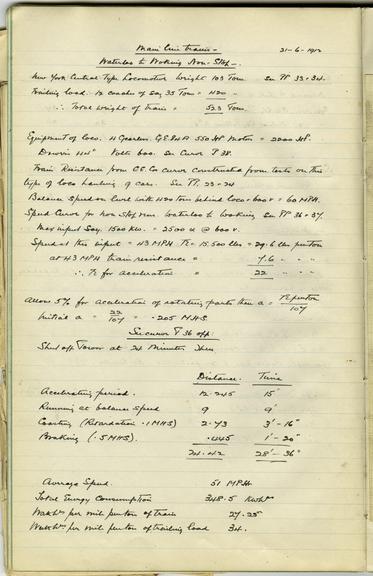 Main line trains - 21-6-1912
Waterloo to Woking Non-Stop -.
New York Central Type Locomotive Weight 103 Tons. See PP 33-34.
Trailing load. 12 coaches of say 35 Tons = 420 -
∴ Total weight of train = 523 Tons.
Equipment of loco. 4 Gearless G.E. 84A 550 HP. Motors = 2200 HP.
Drivers 44" Volts 600. See Curve P 38.
Train Resistance from G.E. Co curve constructed from tests on this
type of loco hauling cars. See PP. 23-24
Balance speed on level with 420 tons behind loco & 600 v = 60 MPH.
Speed Curve for non stop run Waterloo to Woking See PP 36-37.
Max input Say. 1500 Kw. = 2500 a @ 600 v.
Speed at this input = 43 MPH. TE = 15,500 lbs = 29.6 lbs per ton
at 43 MPH train resistance = 7.6 " " "
∴ TE for acceleration = 22 " " "
Allow 5% for acceleration of rotating parts then a = TE per ton / 107
Initial a = 22/107 = .205 M.H.S.
See curve P 36 opp:
Shut off Power at 24 Minutes then
Distance. Time
Accelerating period. 12.245 15'
Running at balance speed 9 9'
Coasting (Retardation .1 MHS) 2.73 3'-16"
Braking (.5 MHS). .445 1'-20"
24.42 28'-36"
Average Speed. 51 MPH.
Total Energy Consumption 348.5 KwHrs
WattHrs per mile per ton of train 27.25
WattHrs per mile per ton of trailing load 34.